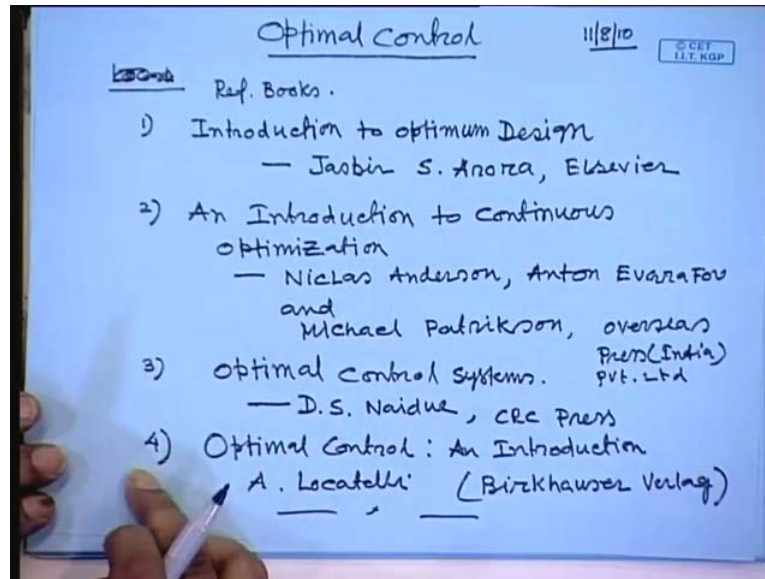 Optimal Control 11/8/10
© CET
I.I.T. KGP
Ref. Books.
1) Introduction to optimum Design
— Jasbir S. Arora, Elsevier
2) An Introduction to continuous
optimization
— Niclas Anderson, Anton Evgrafov
and
Michael Patrikson, overseas
Press (India)
Pvt. Ltd
3) Optimal Control Systems.
— D. S. Naidu, CRC Press
4) Optimal Control : An Introduction
A. Locatelli (Birkhauser Verlag)